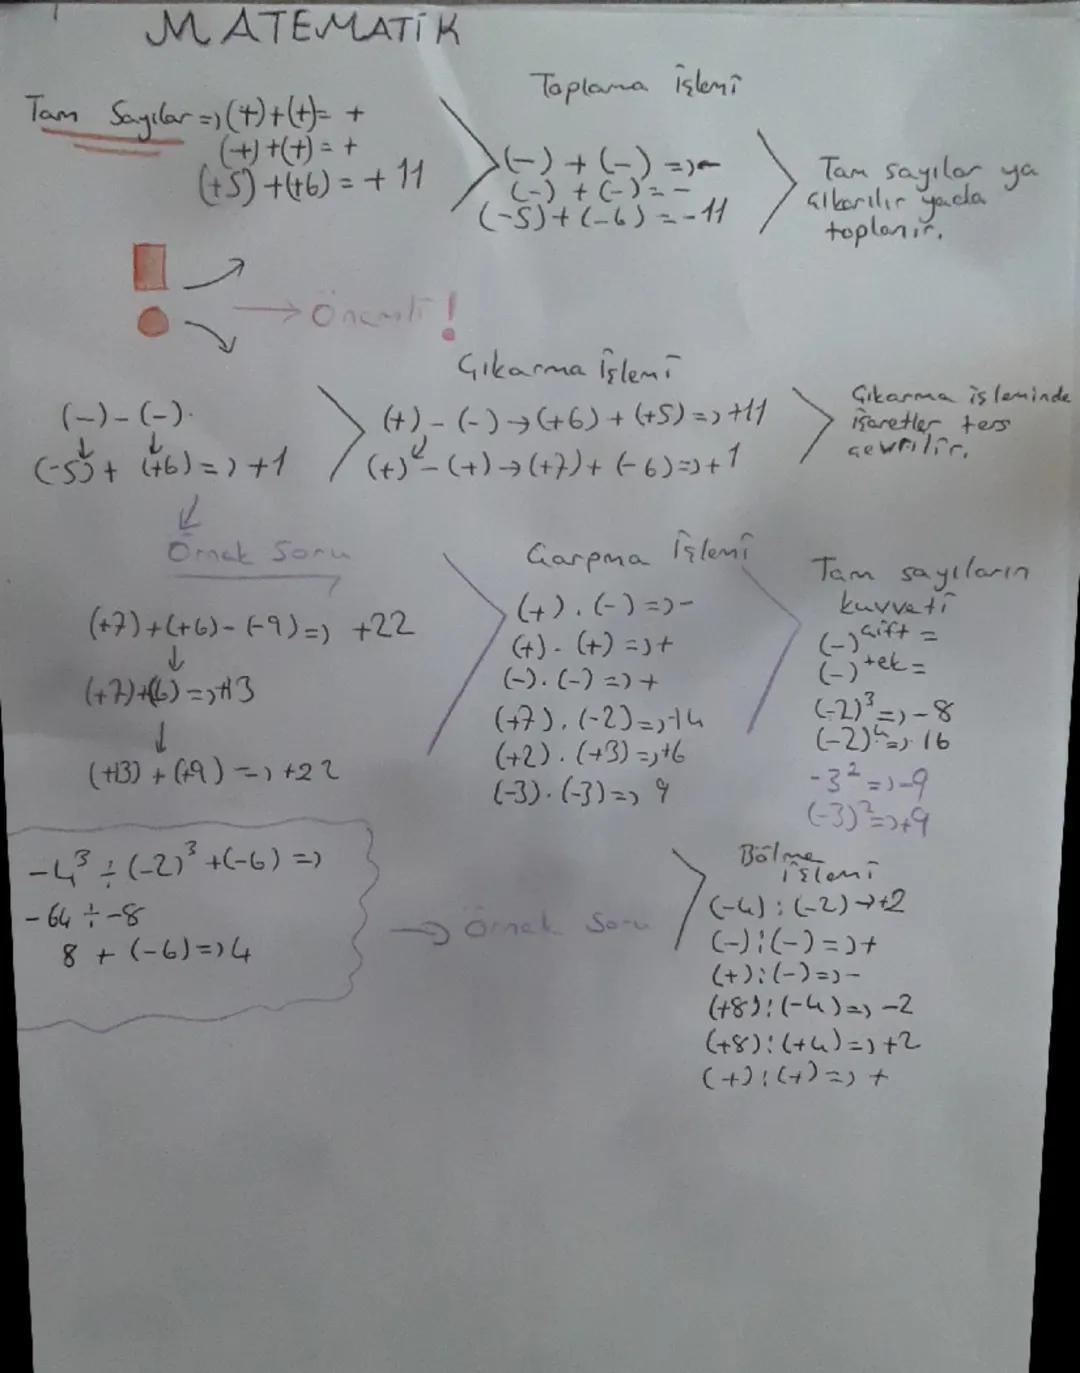 MATEMATİK
Tam Sayılar => (+)+(+)= +
(+)+(+) = +
(+5)+(+6) = + 11
Toplama işlemi
(-) + (-) => -
(-) + (-) = -
(-5)+(-6) = -11
Tam sayılar ya
çıkarılır yada
toplanır.
Önemli!
Çıkarma işlemi
(-)-(-).
(-5)+ (+6) => +1
(+) - (-) → (+6) + (+5) => +11
(+) - (+) → (+7) + (-6) => +1
Çıkarma işleminde
işaretler ters
çevrilir.
Örnek Soru
(+7)+(+6)-(-9) => +22
(+7)+(6) => +13
(+13) + (+9) => +22
Çarpma işlemi
(+) . (-) => -
(+) . (+) => +
(-) . (-) => +
(+7) . (-2) => -14
(+2) . (+3) => +6
(-3) . (-3) => 9
Tam sayıların
kuvveti
(-)^çift =
(-)^+ek =
(-2)³ => -8
(-2)⁴ => 16
-3² => -9
(-3)² => +9
-4³ ÷ (-2)³ +(-6) =>
-64 ÷ -8
8 + (-6) => 4
Örnek Soru
Bölme
işlemi
(-4) : (-2) → +2
(-) : (-) => +
(+) : (-) => -
(+8) : (-4) => -2
(+8) : (+4) => +2
(+) : (+) => +